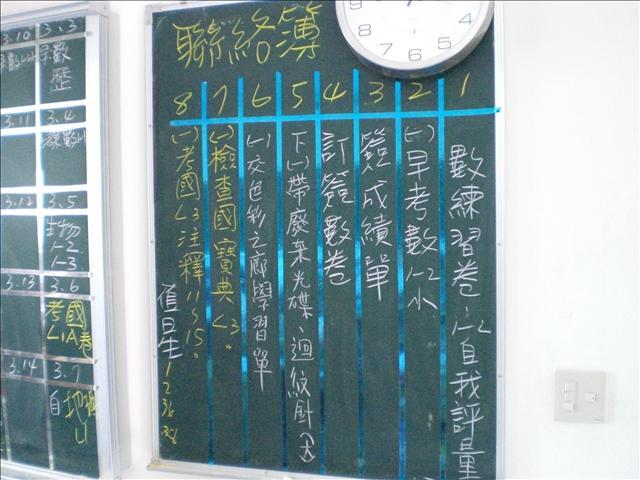 聯絡簿
1 數練習卷1-2自我評量
2 (一)早考數1-2小
3 簽成績單
4 訂簽數卷
5 下(一)帶廢棄光碟、迴紋針(大)
6 (一)交色彩之廊學習單
7 (一)檢查國寶典L3。
8 (一)考國L3注釋11~15。
值星
1
2
36
38
3.10
3.3
早數
歷
3.11
3.4
3.12
3.5
生物
1-2
1-3
3.13
3.6
考國
L1A卷
3.14
3.7
9
8
7
6
5
4
3